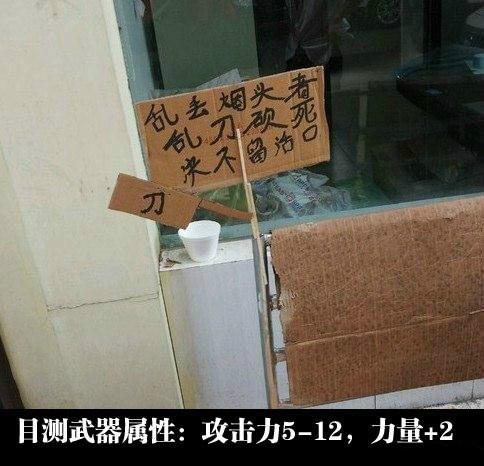 乱丢烟头者
乱刀砍死
决不留活口
刀
目测武器属性：攻击力5-12，力量+2